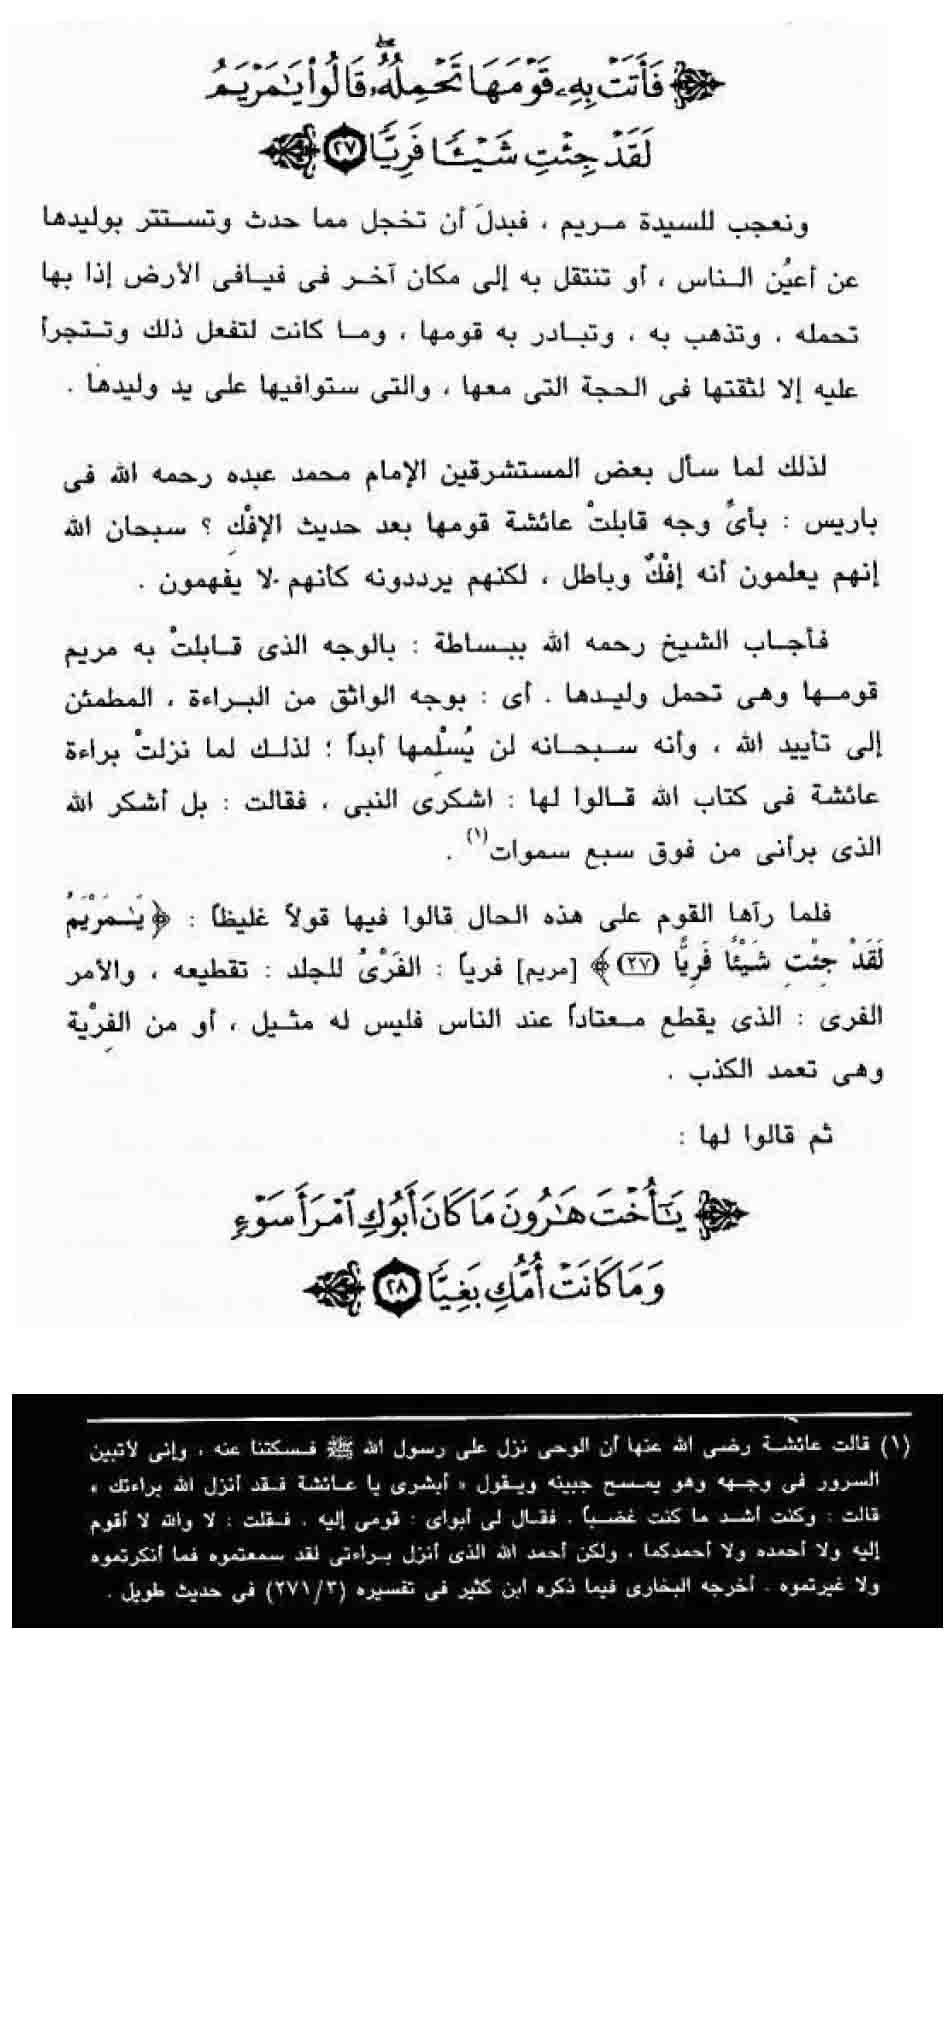 فَأَتَتْ بِهِۦ قَوْمَهَا تَحْمِلُهُۥ ۖ قَالُوا۟ يَٰمَرْيَمُ
لَقَدْ جِئْتِ شَيْـًٔا فَرِيًّا ٢٧
ونعجب للسيدة مريم ، فبدلَ أن تخجل مما حدث وتستتر بوليدها
عن أعيُن الناس ، أو تنتقل به إلى مكان آخر فى فيافى الأرض إذا بها
تحمله ، وتذهب به ، وتبادر به قومها ، وما كانت لتفعل ذلك وتتجرأ
عليه إلا لثقتها فى الحجة التى معها ، والتى ستوافيها على يد وليدها .
لذلك لما سأل بعض المستشرقين الإمام محمد عبده رحمه الله فى
باريس : بأىِّ وجه قابلتْ عائشة قومها بعد حديث الإفْكِ ؟ سبحان الله
إنهم يعلمون أنه إفْكٌ وباطل ، لكنهم يرددونه كأنهم لا يفهمون .
فأجاب الشيخ رحمه الله ببساطة : بالوجه الذى قابلتْ به مريم
قومها وهى تحمل وليدها . أى : بوجه الواثق من البراءة ، المطمئن
إلى تأييد الله ، وأنه سبحانه لن يُسْلِمها أبداً ؛ لذلك لما نزلتْ براءة
عائشة فى كتاب الله قالوا لها : اشكرى النبى ، فقالت : بل أشكر الله
الذى برأنى من فوق سبع سموات(١) .
فلما رآها القوم على هذه الحال قالوا فيها قولاً غليظاً : ﴿ يَـٰمَرْيَمُ
لَقَدْ جِئْتِ شَيْئًا فَرِيًّا (٢٧) ﴾ [مريم] فرياً : الفَرْىُ للجلد : تقطيعه ، والأمر
الفرى : الذى يقطع معتاداً عند الناس فليس له مثيل ، أو من الفِرْية
وهى تعمد الكذب .
ثم قالوا لها :
يَٰٓأُخْتَ هَٰرُونَ مَا كَانَ أَبُوكِ ٱمْرَأَ سَوْءٍ
وَمَا كَانَتْ أُمُّكِ بَغِيًّا ٢٨
(١) قالت عائشة رضى الله عنها أن الوحى نزل على رسول الله ﷺ فسكتنا عنه ، وإنى لأتبين
السرور فى وجهه وهو يمسح جبينه ويقول « أبشرى يا عائشة فقد أنزل الله براءتك »
قالت : وكنت أشد ما كنت غضباً ، فقال لى أبواى : قومى إليه . فقلت : لا والله لا أقوم
إليه ولا أحمده ولا أحمدكما ، ولكن أحمد الله الذى أنزل براءتى لقد سمعتموه فما أنكرتموه
ولا غيرتموه . أخرجه البخارى فيما ذكره ابن كثير فى تفسيره (٢٧١/٣) فى حديث طويل .